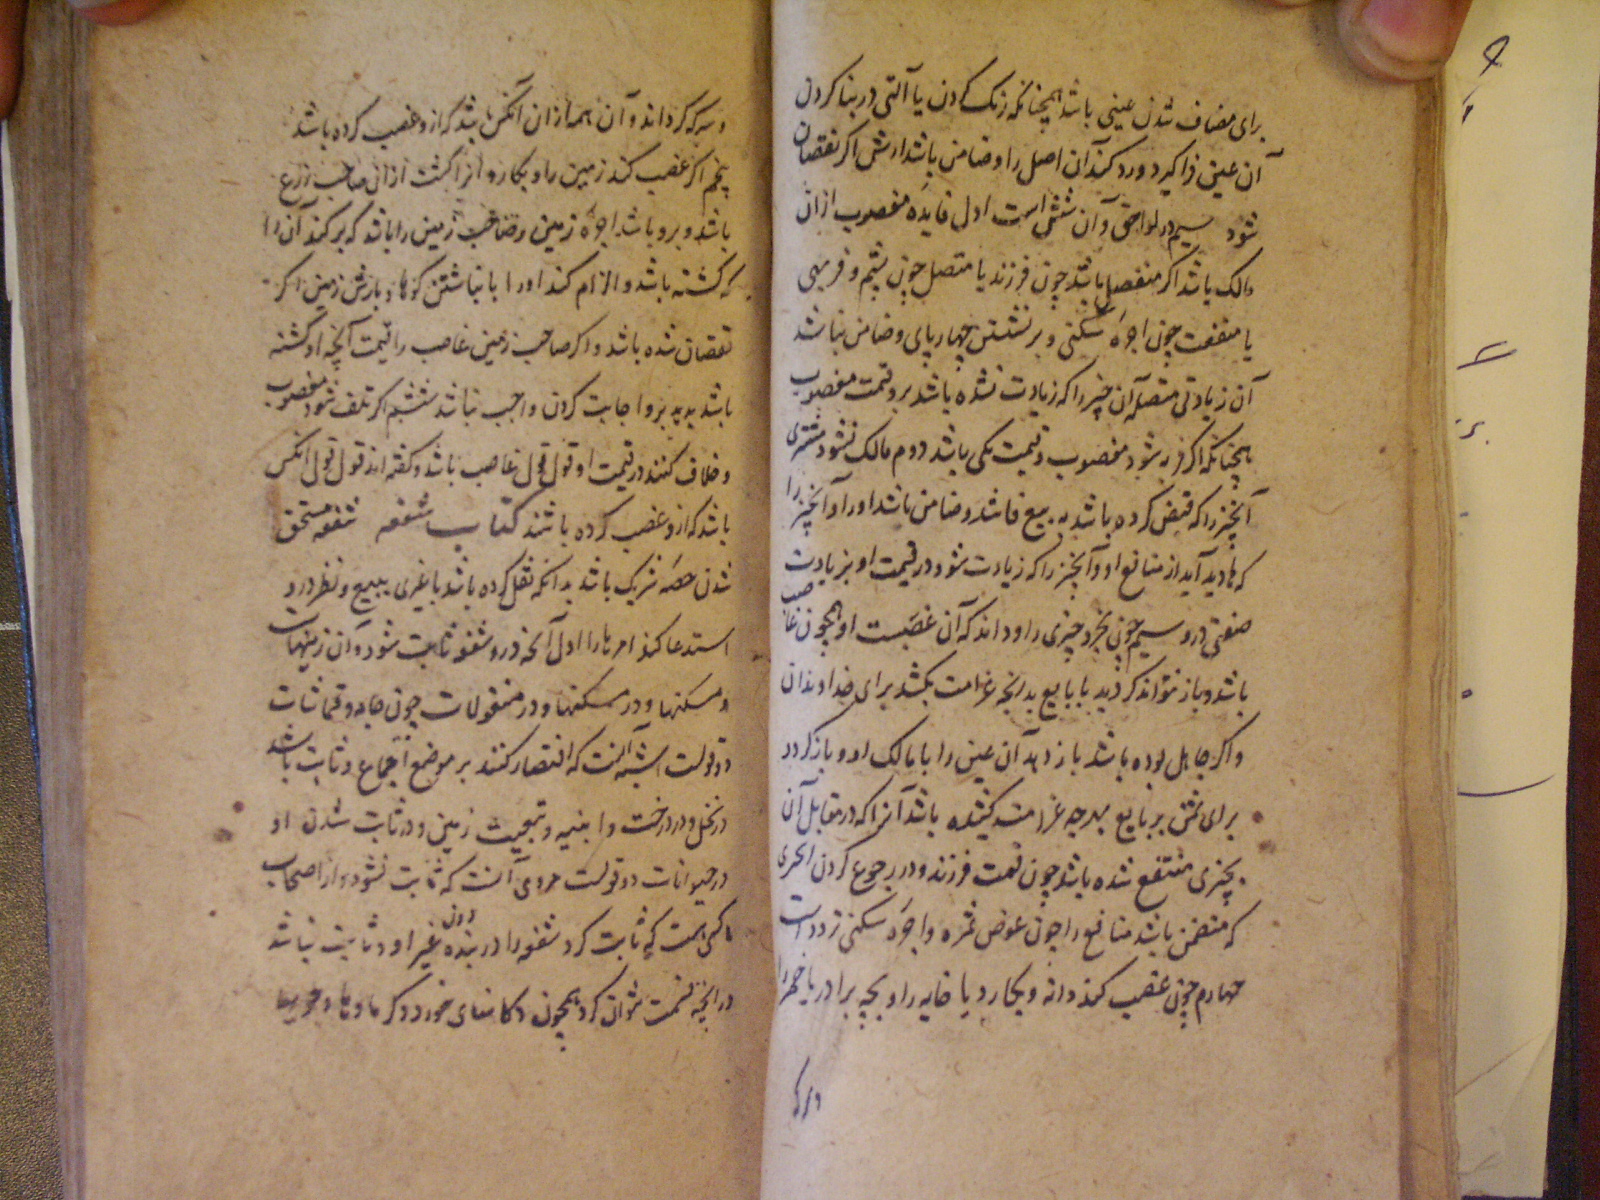 برای مضاف شدن عینی باشد همچنانکه رنک کردن یا آلتی در بنا کردن
آن عین فرا کیرد و رد کند آن اصل را و ضامن باشد ارش اکر نقصان
شود سیم در لواحق و آن شش است اول فایده مغصوب ازان
مالک باشد اکر منفصل باشد چون فرزند یا متصل چون پشم و فربهی
یا منفعت چون اجره سکنی و بر نشستن چهارپای و ضامن نباشد
آن زیادتی متصله آن چیز را که زیادت نشده باشد برو قیمت مغصوب
همچنانکه اکر فربه شود مغصوب و قیمت یکی باشد دوم مالک نشود مشتری
آنچیز را که قبض کرده باشد به بیع فاسد و ضامن باشد او را و آنچیز را
که پدید آید از منافع او و آنچیز را که زیادت شود در قیمت او بزیادت
صنعتی درو سیم چون بخرد چیزی را و داند که آن غصبست او همچون غاصب
باشد و باز نتواند کردید با بایع بدانچه غرامت بکشد برای خداوندان
و اکر جاهل بوده باشد باز دهد آن عین را با مالک او و باز کردد
برای ثمن بر بایع بهرچه غرامت کشیده باشد آنرا که در مقابل آن
بچیزی منتفع نشده باشد چون قیمت فرزند و در رجوع کردن
که متضمن باشد منافع را چون عوض ثمره و اجره سکنی ترددست
چهارم چون غصب کند دانه و بکارد یا خایه را و بچه برآرد یا خمر را
و سرکه کرداند و آن همه ازان آنکس باشد که ازو غصب کرده باشد
پنجم اکر غصب کند زمین را و بکارد آنرا کشت ازان صاحب زرع
باشد و برو باشد اجره زمین و صاحب زمین را باشد که برکند آن را
که کشته باشد و الزام کند او را بانباشتن کوها و بارش زمین اکر
نقصان شده باشد و اکر صاحب زمین غاصب را قیمت آنچه او کشته
باشد بدهد برو اجابت کردن واجب نباشد ششم اکر تلف شود مغصوب
و خلاف کنند در قیمت او قول قول غاصب باشد و کفته اند قول قول آنکس
باشد که ازو غصب کرده باشند کتاب شفعه شفعه مستحق
شدن حصه شریک باشد بدانکه نقل کرده باشد با غیری ببیع و نظر درو
استدعا کند امرها را اول آنچه درو شفعه ثابت شود و آن زمینهاست
و مسکنها و در مسکنها و در منقولات چون جامه و قماشات
دو قولست اشبه آنست که اقتصار کنند بر موضع اجماع و ثابت باشد
در نخل و در درخت و ابنیه و بتبعیت زمین و در ثابت شدن او
در حیوانات دو قولست مروی آنست که ثابت نشود و از اصحاب
ما کس هست که ثابت کرد شفعه را در بنده دون غیر او و ثابت نباشد
در آنچه قسمت نتوان کرد همچون دکانهای خورد و کرماوها و جویها